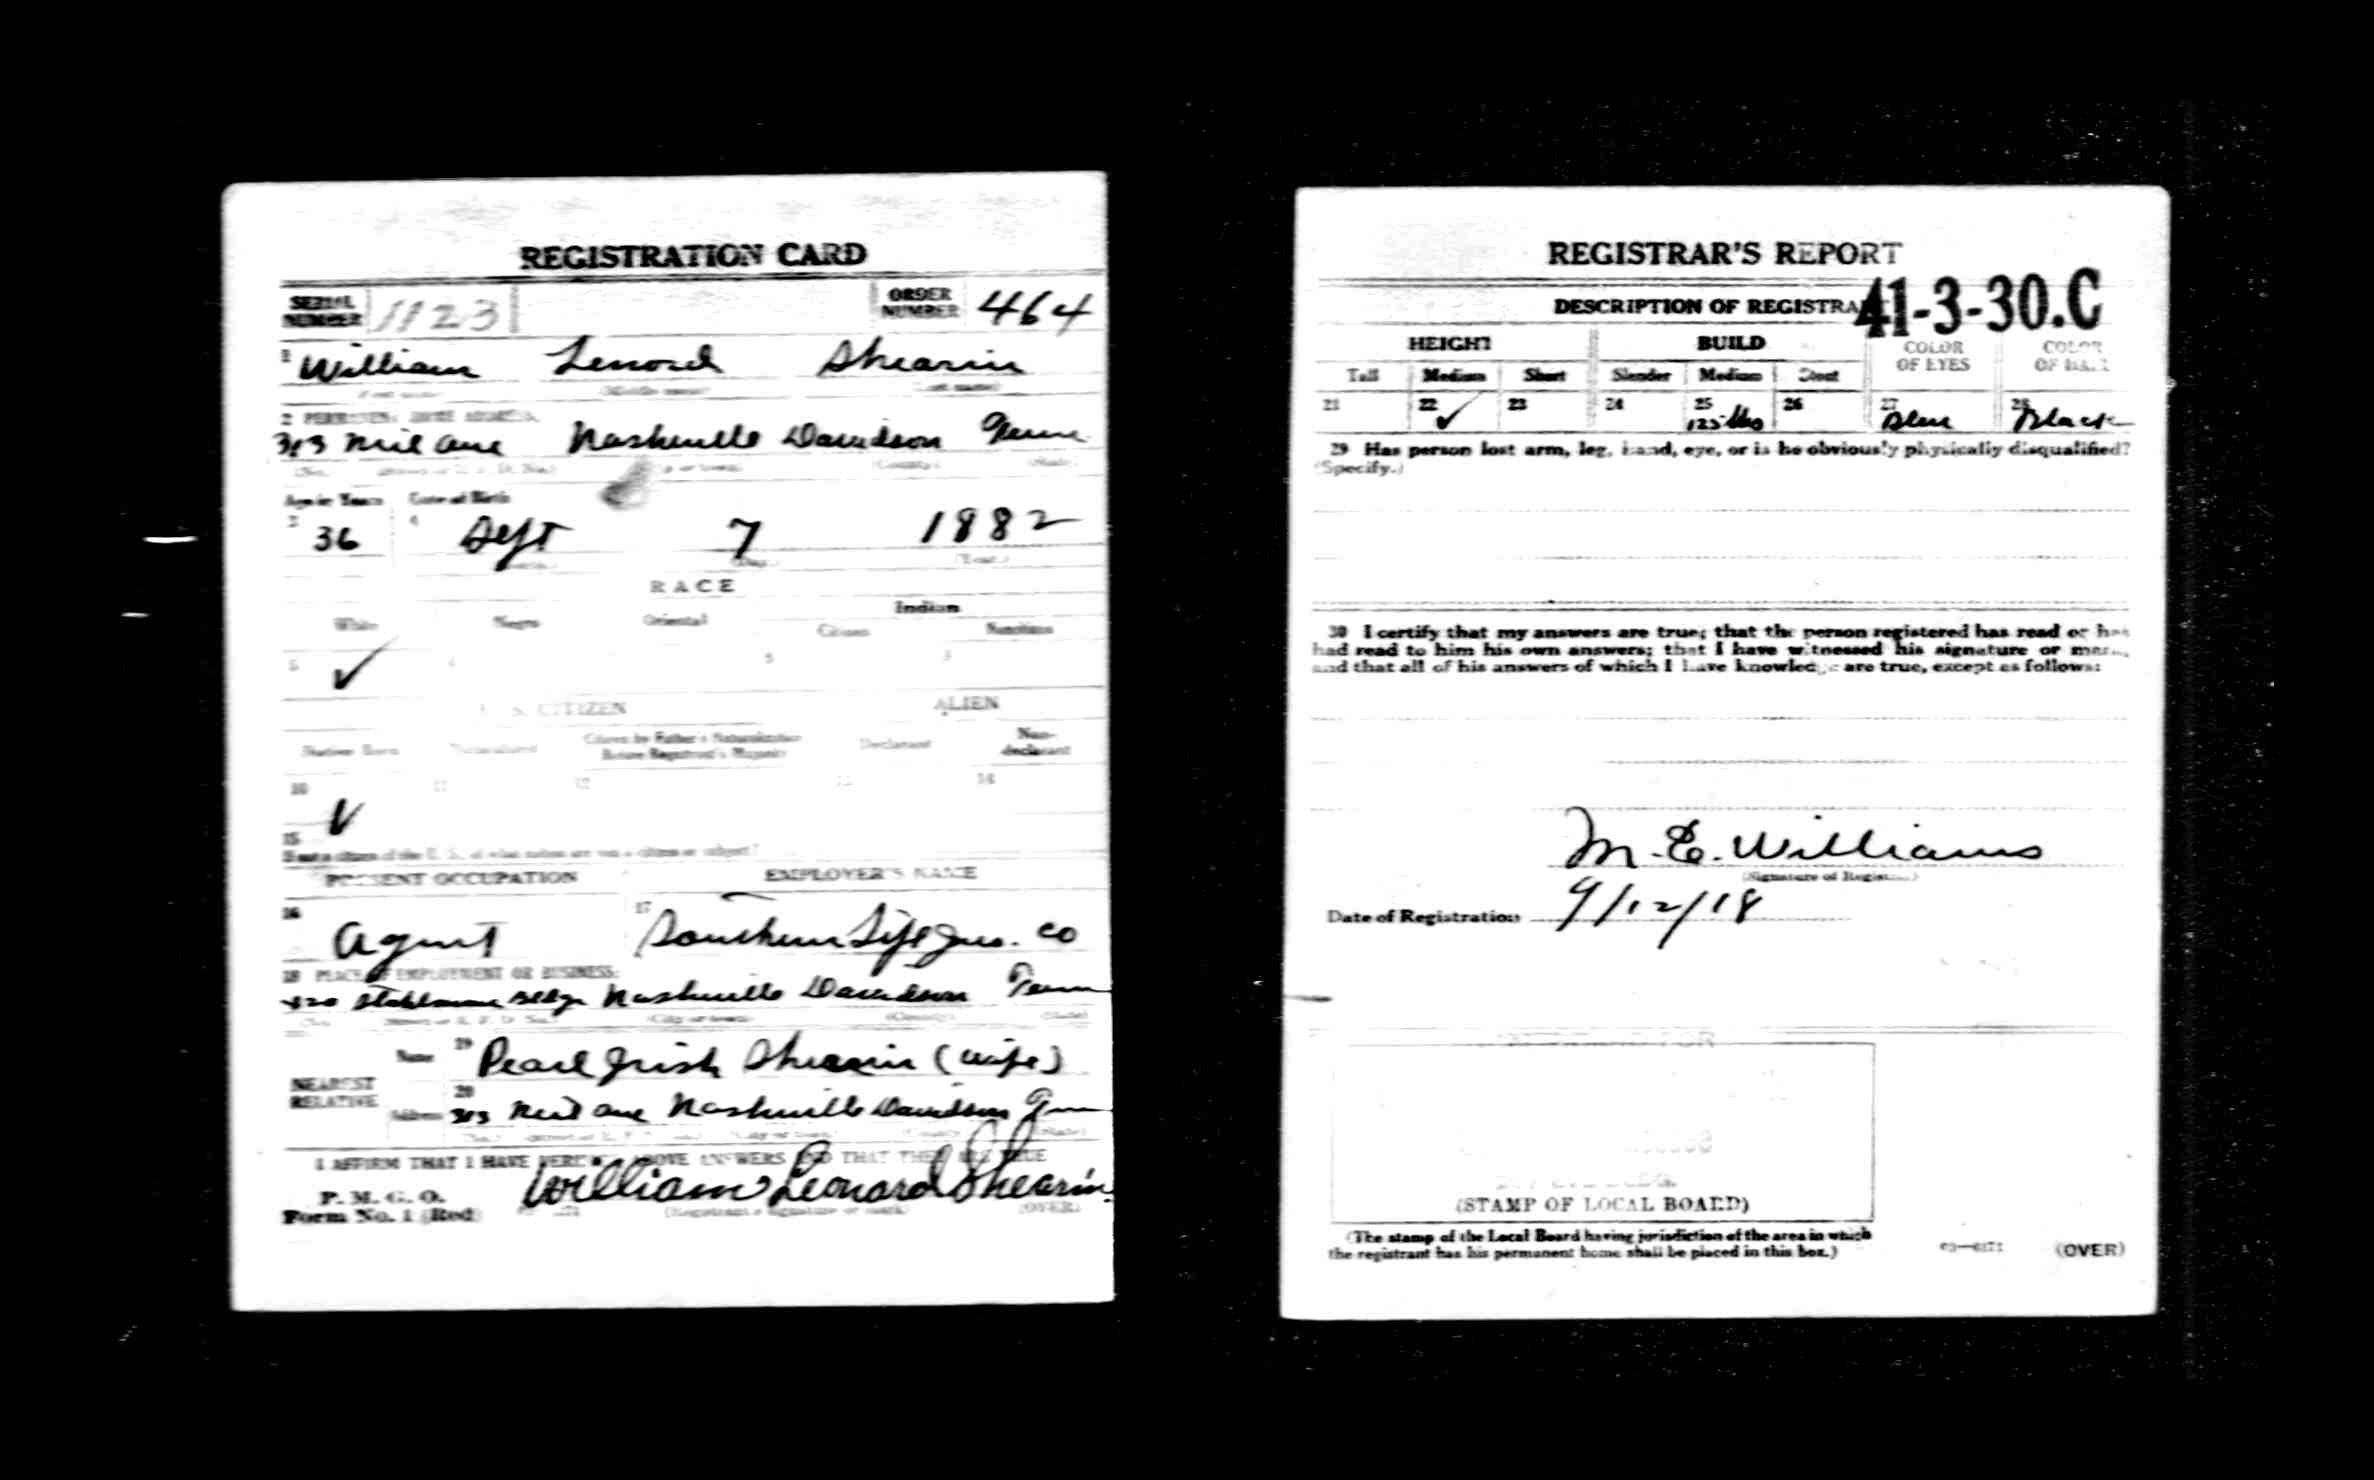 REGISTRATION CARD
SERIAL NUMBER 1123 ORDER NUMBER 464
1 William Lenord Shearin
(First name) (Middle name) (Last name)
2 PERMANENT HOME ADDRESS:
313 ave Nashville Davidson Tenn
(No.) (Street or R. F. D. No.) (City or town) (County) (State)
Age in Years Date of Birth
3 36 4 Sept 7 1882
(Month.) (Day.) (Year.)
RACE
White Negro Oriental Indian
Citizen Noncitizen
5 ✓
U. S. CITIZEN ALIEN
Native Born Naturalized Citizen by Father's Naturalization Before Registrant's Majority Declarant Non-declarant
10 ✓ 11 12 13 14
15
If not a citizen of the U. S., of what nation are you a citizen or subject?
PRESENT OCCUPATION EMPLOYER'S NAME
16 Agent 17 Southern Life Ins. Co
18 PLACE OF EMPLOYMENT OR BUSINESS:
420 Stahlman Bldg Nashville Davidson Tenn
(No.) (Street or R. F. D. No.) (City or town) (County) (State)
NEAREST RELATIVE
Name 19 Pearl Irish Shearin (wife)
Address 20 313 ave Nashville Davidson Tenn
(No.) (Street or R. F. D. No.) (City or town) (County) (State)
I AFFIRM THAT I HAVE VERIFIED ABOVE ANSWERS AND THAT THEY ARE TRUE
P. M. G. O.
Form No. 1 (Red) William Leonard Shearin
(Registrant's signature or mark) (OVER)
REGISTRAR'S REPORT
41-3-30.C
DESCRIPTION OF REGISTRA
HEIGHT BUILD COLOR OF EYES COLOR OF HAIR
Tall Medium Short Slender Medium Stout
21 22 ✓ 23 24 25 125 lbs 26 27 Blue 28 Black
29 Has person lost arm, leg, hand, eye, or is he obviously physically disqualified?
(Specify.)
30 I certify that my answers are true; that the person registered has read or has
had read to him his own answers; that I have witnessed his signature or mark,
and that all of his answers of which I have knowledge are true, except as follows:
M. E. Williams
(Signature of Registrar)
Date of Registration 9/12/18
(STAMP OF LOCAL BOARD)
(The stamp of the Local Board having jurisdiction of the area in which
the registrant has his permanent home shall be placed in this box.)
(OVER)